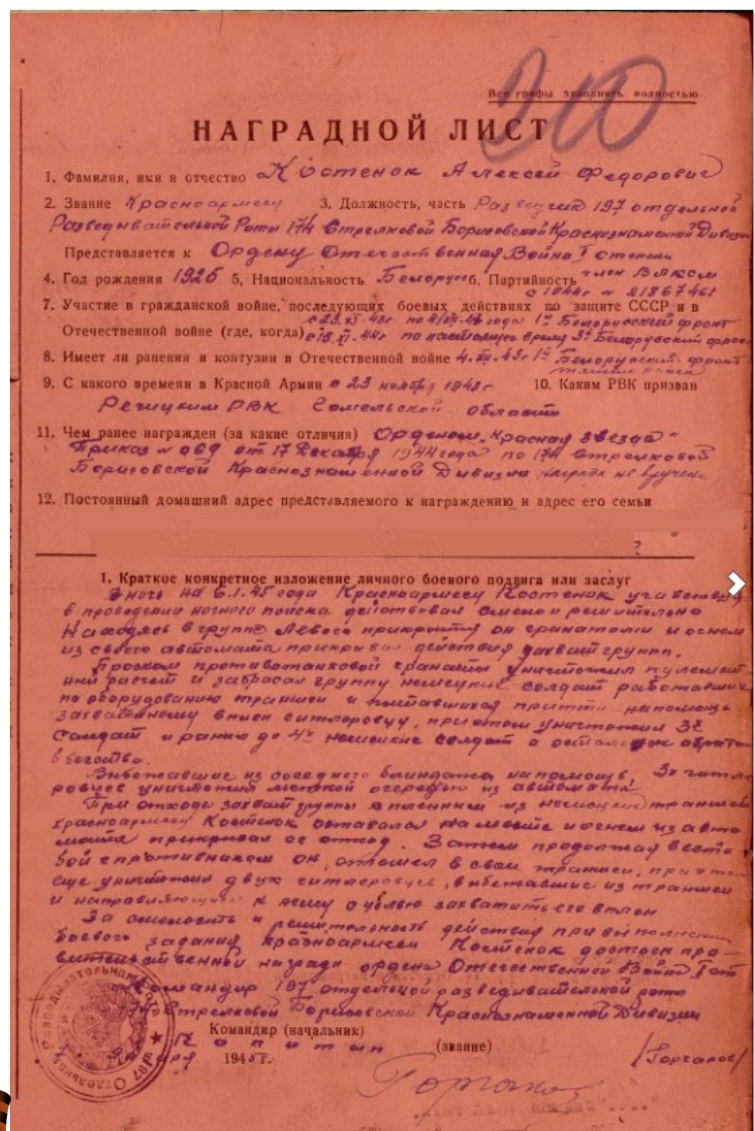 Все графы заполнять полностью
210
НАГРАДНОЙ ЛИСТ
1. Фамилия, имя и отчество Костенок Алексей Федорович
2. Звание Красноармеец 3. Должность, часть Разведчик 197 отдельной
Разведывательной Роты 174 Стрелковой Борисовской Краснознаменной Дивизии
Представляется к Ордену Отечественная Война I степени
4. Год рождения 1926 5, Национальность Белорус 6. Партийность член ВЛКСМ
с 1944г № 21867461
7. Участие в гражданской войне, последующих боевых действиях по защите СССР и в
1й Белорусский фронт
Отечественной войне (где, когда) по настоящее время 3й Белорусский фронт
8. Имеет ли ранения и контузии в Отечественной войне 1й Белорусский фронт
тяжело ранен
9. С какого времени в Красной Армии с 23 ноября 1943г 10. Каким РВК призван
Речицким РВК Гомельской области
11. Чем ранее награжден (за какие отличия) Орденом "Красная звезда"
Приказ № 069 от 17 декабря 1944 года по 174 стрелковой
Борисовской Краснознаменной Дивизии награда не вручена
12. Постоянный домашний адрес представляемого к награждению и адрес его семьи
?
I. Краткое конкретное изложение личного боевого подвига или заслуг
В ночь на 6.1.45 года Красноармеец Костенок участвуя
в проведении ночного поиска действовал смело и решительно
Находясь в группе левого прикрытия он гранатами и огнем
из своего автомата прикрывал действия захват группы.
Броском противотанковой гранаты уничтожил пулемет-
ный расчет и забросал группу немецких солдат работавших
по оборудованию траншеи и пытавшихся притти на помощь
захваченному в плен гитлеровцу, при этом уничтожил 3х
солдат и ранил до 4х немецких солдат а остальных обратил
в бегство.
Выбежавшие из соседнего блиндажа на помощь, 3х гитле-
ровцев уничтожил меткой очередью из автомата.
При отходе захват группы с пленным из немецкой траншеи
красноармеец Костенок оставался на месте и огнем из авто
мата прикрывал ее отход. Затем продолжая вести
бой с противником он, отошел в свои траншеи, при этом
еще уничтожил двух гитлеровцев, выбежавшие из траншеи
и направляющихся к нему с целью захватить его в плен
За смелость и решительность действия при выполнении
боевого задания красноармеец Костенок достоин пра-
вительственной награды ордена Отечественной Войны I ст
Командир 197 отдельной разведывательной роты
174 Стрелковой Борисовской Краснознаменной Дивизии
Командир (начальник)
Капитан (звание) /Горчаков/
января 1945 г.
Горчаков